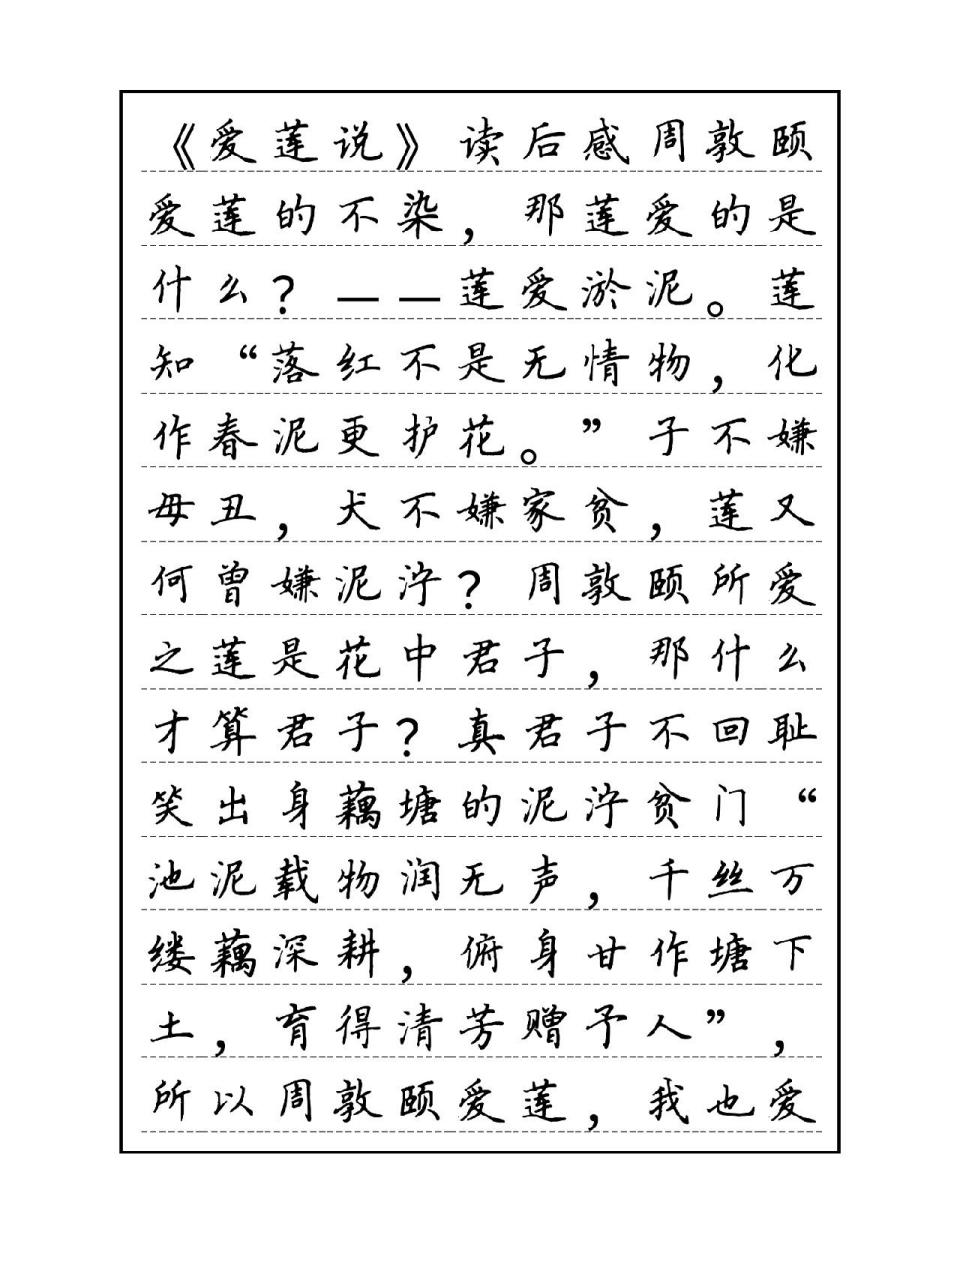 《爱莲说》读后感周敦颐
爱莲的不染，那莲爱的是
什么？——莲爱淤泥。莲
知“落红不是无情物，化
作春泥更护花。”子不嫌
母丑，犬不嫌家贫，莲又
何曾嫌泥泞？周敦颐所爱
之莲是花中君子，那什么
才算君子？真君子不回耻
笑出身藕塘的泥泞贫门“
池泥载物润无声，千丝万
缕藕深耕，俯身甘作塘下
土，育得清芳赠予人”，
所以周敦颐爱莲，我也爱